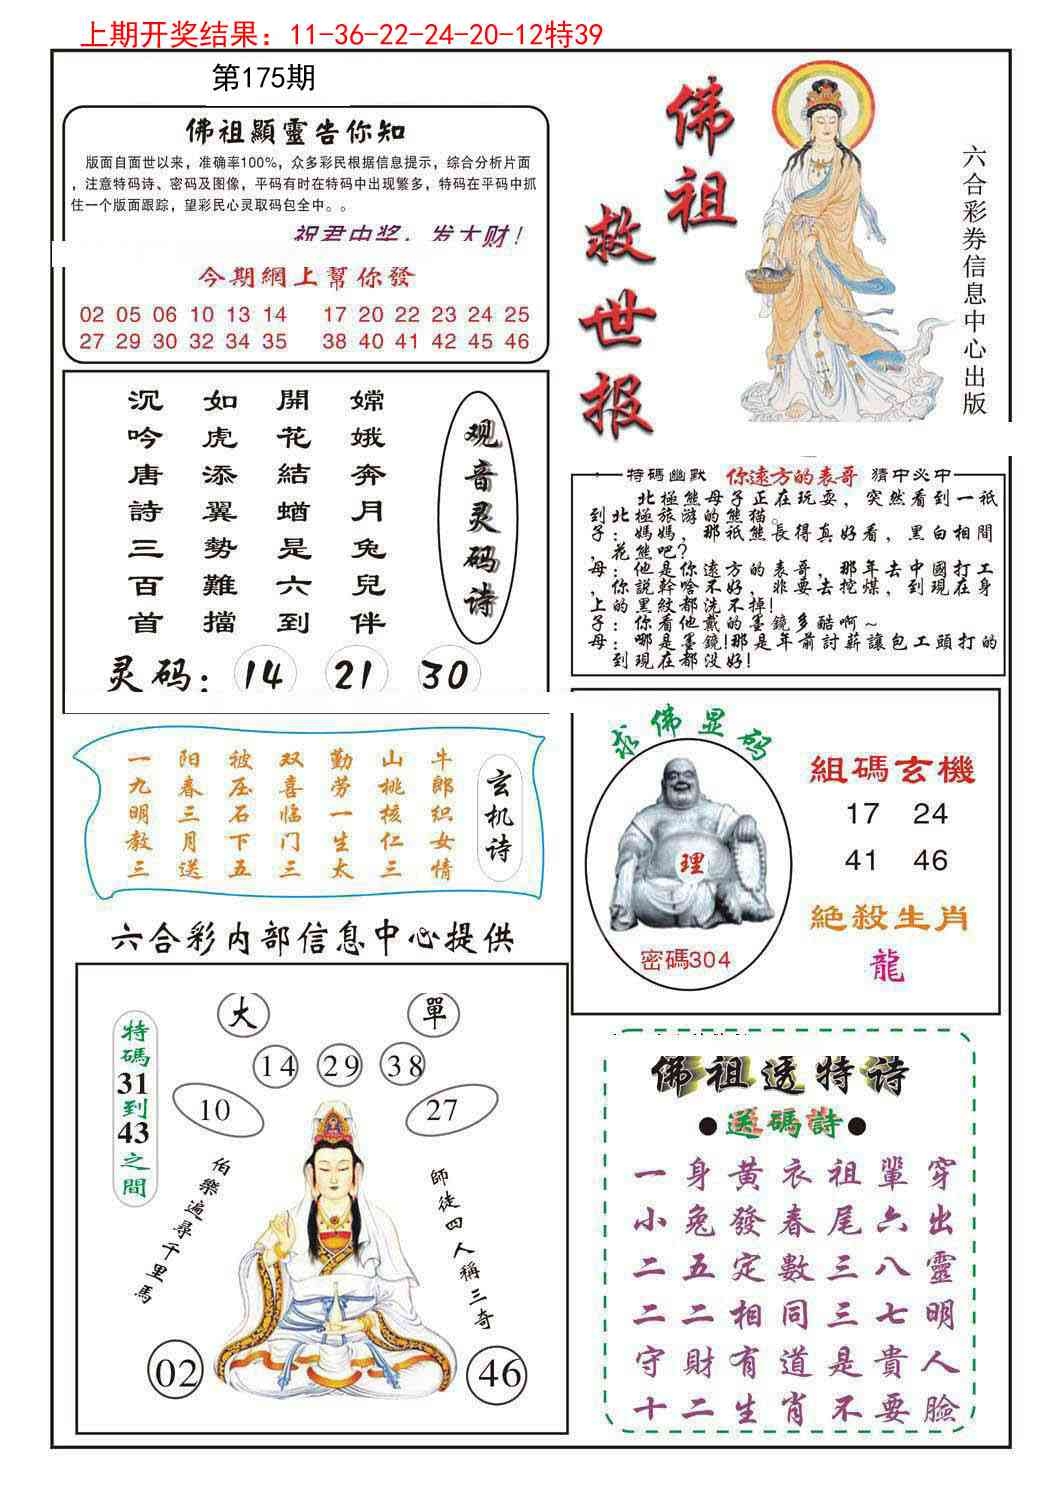 上期开奖结果：11-36-22-24-20-12特39
第175期
佛祖顯靈告你知
版面自面世以来，准确率100%，众多彩民根据信息提示，综合分析片面
，注意特码诗、密码及图像，平码有时在特码中出现繁多，特码在平码中抓
住一个版面跟踪，望彩民心灵取码包全中。。
祝君中奖，发大财！
今期網上幫你發
02 05 06 10 13 14 17 20 22 23 24 25
27 29 30 32 34 35 38 40 41 42 45 46
佛祖
救世报
六合彩券信息中心出版
观音灵码诗
嫦娥奔月兔兒伴
開花結蝤是六到
如虎添翼勢難擋
沉吟唐詩三百首
灵码：14 21 30
特碼幽默 你遠方的表哥 猜中必中
北極熊母子正在玩耍，突然看到一祇
到北極旅游的熊猫。
子：媽媽，那祇熊長得真好看，黑白相間
，花熊吧？
母：他是你遠方的表哥，那年去中國打工
，你說幹啥不好，非要去挖煤，到現在身
上的黑紋都洗不掉！
子：你看他戴的墨鏡多酷啊～
母：哪是墨鏡！那是年前討薪讓包工頭打的
到現在都没好！
玄机诗
牛郎织女情
山桃核仁三
勤劳一生太
双喜临门三
被压石下五
阳春三月送
一九明教三
求佛显码
理
密碼304
組碼玄機
17 24
41 46
絕殺生肖
龍
六合彩内部信息中心提供
大
單
14 29 38
10
27
特碼31到43之間
伯樂遍尋千里馬
師徒四人稱三奇
02
46
佛祖透特诗
●送碼詩●
一身黃衣祖輩穿
小兔發春尾六出
二五定數三八靈
二二相同三七明
守財有道是貴人
十二生肖不要臉